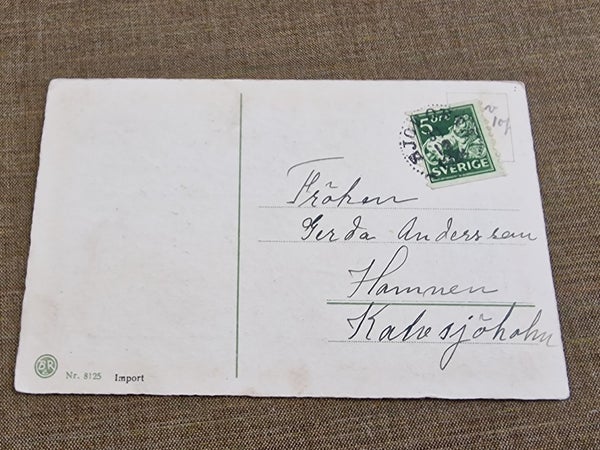 5 ÖRE
SVERIGE
10f
Fröken
Gerda Anderssson
Hamnen
Kalvsjöholm
Nr. 8125 Import